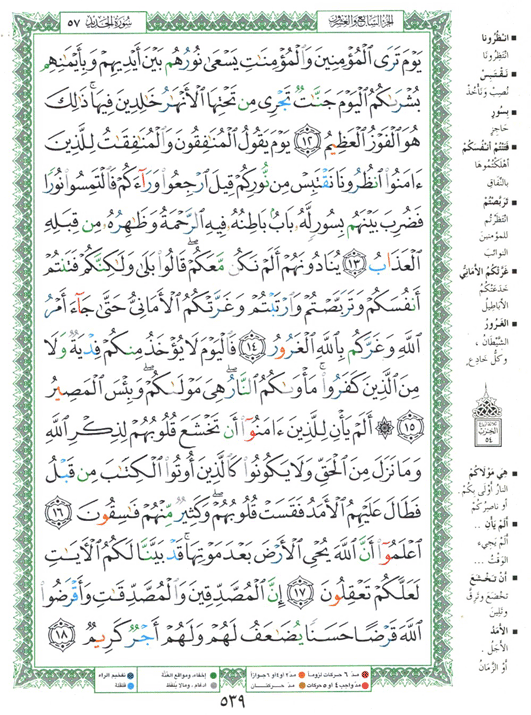 سورة الحديد ٥٧
الجزء السابع والعشرون
يَوْمَ تَرَى الْمُؤْمِنِينَ وَالْمُؤْمِنَاتِ يَسْعَىٰ نُورُهُم بَيْنَ أَيْدِيهِمْ وَبِأَيْمَانِهِم
بُشْرَاكُمُ الْيَوْمَ جَنَّاتٌ تَجْرِي مِن تَحْتِهَا الْأَنْهَارُ خَالِدِينَ فِيهَا ۚ ذَٰلِكَ
هُوَ الْفَوْزُ الْعَظِيمُ ١٢ يَوْمَ يَقُولُ الْمُنَافِقُونَ وَالْمُنَافِقَاتُ لِلَّذِينَ
ءَامَنُوا انظُرُونَا نَقْتَبِسْ مِن نُّورِكُمْ قِيلَ ارْجِعُوا وَرَاءَكُمْ فَالْتَمِسُوا نُورًا
فَضُرِبَ بَيْنَهُم بِسُورٍ لَّهُ بَابٌ بَاطِنُهُ فِيهِ الرَّحْمَةُ وَظَاهِرُهُ مِن قِبَلِهِ
الْعَذَابُ ١٣ يُنَادُونَهُمْ أَلَمْ نَكُن مَّعَكُمْ ۖ قَالُوا بَلَىٰ وَلَٰكِنَّكُمْ فَتَنتُمْ
أَنفُسَكُمْ وَتَرَبَّصْتُمْ وَارْتَبْتُمْ وَغَرَّتْكُمُ الْأَمَانِيُّ حَتَّىٰ جَاءَ أَمْرُ
اللَّهِ وَغَرَّكُم بِاللَّهِ الْغَرُورُ ١٤ فَالْيَوْمَ لَا يُؤْخَذُ مِنكُمْ فِدْيَةٌ وَلَا
مِنَ الَّذِينَ كَفَرُوا ۚ مَأْوَاكُمُ النَّارُ ۖ هِيَ مَوْلَاكُمْ ۖ وَبِئْسَ الْمَصِيرُ
١٥ ۞ أَلَمْ يَأْنِ لِلَّذِينَ ءَامَنُوا أَن تَخْشَعَ قُلُوبُهُمْ لِذِكْرِ اللَّهِ
وَمَا نَزَلَ مِنَ الْحَقِّ وَلَا يَكُونُوا كَالَّذِينَ أُوتُوا الْكِتَابَ مِن قَبْلُ
فَطَالَ عَلَيْهِمُ الْأَمَدُ فَقَسَتْ قُلُوبُهُمْ ۖ وَكَثِيرٌ مِّنْهُمْ فَاسِقُونَ ١٦
اعْلَمُوا أَنَّ اللَّهَ يُحْيِي الْأَرْضَ بَعْدَ مَوْتِهَا ۚ قَدْ بَيَّنَّا لَكُمُ الْآيَاتِ
لَعَلَّكُمْ تَعْقِلُونَ ١٧ إِنَّ الْمُصَّدِّقِينَ وَالْمُصَّدِّقَاتِ وَأَقْرَضُوا
اللَّهَ قَرْضًا حَسَنًا يُضَاعَفُ لَهُمْ وَلَهُمْ أَجْرٌ كَرِيمٌ ١٨
■ انْظُرُونا
انْتَظِرُونا
■ نَقْتَبِسْ
نُصِبْ وَنَأْخُذْ
■ بِسُورٍ
حَاجِزٍ
■ فَتَنْتُمْ أَنْفُسَكُمْ
أَهْلَكْتُمُوهَا
بالنِّفَاقِ
■ تَرَبَّصْتُمْ
انْتَظَرْتُمْ
للمؤمنين
النوائب
■ غَرَّتْكُمُ الأَمَانِيُّ
خَدَعَتْكُمُ
الأَبَاطِيلُ
■ الغَرُورُ
الشَّيْطَانُ ،
وكلُّ خَادِعٍ
الحزب
٥٤
■ هِيَ مَوْلَاكُمْ
النارُ أَوْلَى بِكُمْ
أو ناصِرُكُمْ
■ أَلَمْ يَأْنِ ..
أَلَمْ يَجِيءِ
الوَقْتُ ..
■ أَنْ تَخْشَعَ
تَخْضَعَ وَتَرِقَّ
وَتَلِينَ
■ الأَمَدُ
الأَجَلُ
أو الزَّمَانُ
مدّ ٦ حركات لزوماً
مدّ ٢ أو ٤ أو ٦ جوازاً
مدّ واجب ٤ أو ٥ حركات
مدّ حركتان
إخفاء، ومواقع الغنّة
إدغام، وما لا يلفظ
تفخيم الراء
قلقلة
٥٣٩